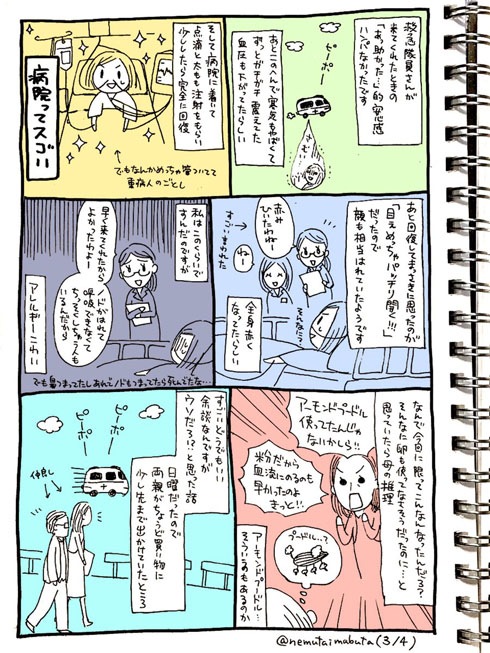 救急隊員さんが
来てくれたときの
「あ、助かった…」的安心感
ハンパなかったです
ピーポー
あとこのへんで寒気もやばくて
ずっとガチガチ震えてた
血圧も下がってたらしい
そして病院に着いて
点滴と太もも注射をもらい
少ししたら完全に回復
病院ってスゴい
でもなんかめっちゃ管ついてて
重病人のごとし
あと回復してまっさきに思ったのが
「目ぇめっちゃパッチリ開く!!!」
だったので
顔も相当はれていたようです
赤み
ひいたわねー
ねー
すごい言われた
そんなに?
全身赤く
なってたらしい
私はこのくらいで
すんだのですが
早く来てくれたから
よかったわよー
ノドがはれて
呼吸できなくて
ちっそくしちゃう人も
いるんだから
アレルギーこわい
でも鼻つまってたしあれでノドもつまってたら死んでたな…
なんで今回に限ってこんななったんだろ?
そんなに卵も使ってなさそうだったのに…と
思っていたら母の推理
アーモンドプードル
使ってたんじゃ
ないかしら!!
粉だから
血流にのるのも
早かったのよ
きっと!!
プードルって
アーモンドプードル…
そういうのもあるのか
すごいどうでもいい
余談なんですが
ウソだろ!?と思った話
日曜だったので
両親がちょうど買い物に
少し先まで出かけていたところ
ピーポー
ピーポー
仲良し
@nemutaimabuta(3/4)